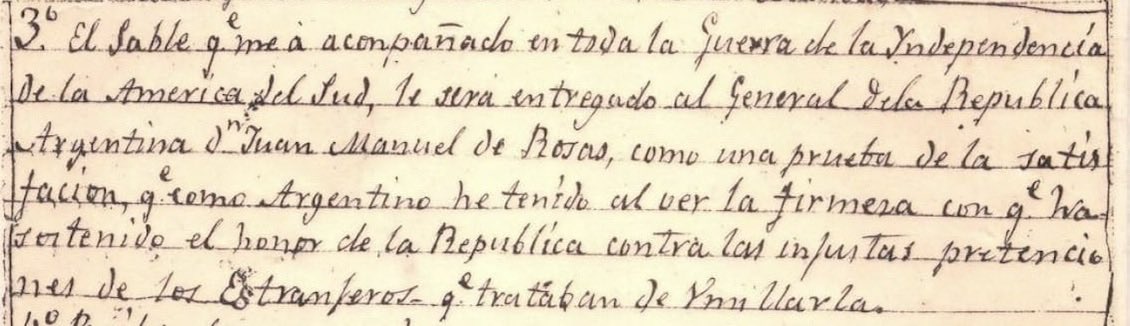 3º. El Sable qe me à aconpañado en toda la Guerra de la Yndependencía
de la America del Sud, le sera entregado al General dela Republíca
Argentina Dn Juan Manuel de Rosas, como una prueba de la satis
facion, qe como Argentino he tenído al ver la firmesa con qe ha
sostenido el honor de la Republíca contra las injustas pretencio
nes de los Estranjeros qe trataban de Ymillarla.